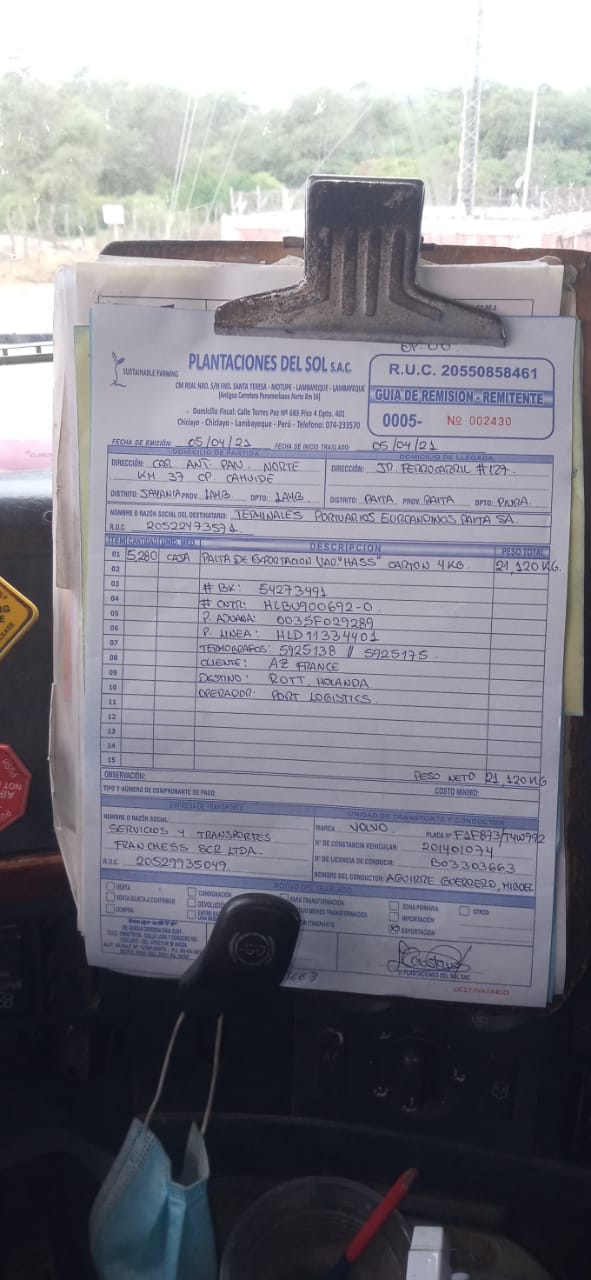 SUSTAINABLE FARMING
PLANTACIONES DEL SOL S.A.C.
CM REAL NRO. S/N FND. SANTA TERESA - MOTUPE - LAMBAYEQUE - LAMBAYEQUE
(Antigua Carretera Panamericana Norte Km 56)
- Domicilio Fiscal: Calle Torres Paz Nº 683 Piso 4 Dpto. 401
Chiclayo - Chiclayo - Lambayeque - Perú - Telefono: 074-233570
R.U.C. 20550858461
GUIA DE REMISION - REMITENTE
0005- Nº 002430
FECHA DE EMISIÓN: 05/04/21 FECHA DE INICIO TRASLADO: 05/04/21
DOMICILIO DE PARTIDA DOMICILIO DE LLEGADA
DIRECCIÓN: CAR. ANT. PAN. NORTE DIRECCIÓN: JR. FERROCARRIL #127.
KM 37 CP. CAHUIDE
DISTRITO: PROV. LAMB. DPTO: LAMB. DISTRITO: PAITA PROV. PAITA DPTO: PIURA.
NOMBRE O RAZÓN SOCIAL DEL DESTINATARIO: TERMINALES PORTUARIOS EUROANDINOS PAITA SA.
R.U.C. 20522473571
ITEM CANTIDAD UNID. MED. DESCRIPCION PESO TOTAL
01 5,280 CAJA PALTA DE EXPORTACION VAR. "HASS" CARTON 4KG. 21,120 KG.
02
03 # BK: 54273491
04 # CNTR: HLBU900692-0
05 P. ADUANA: 0035F029289
06 P. LINEA: HLD11334401
07 TERMOGRAFOS: 5925138 // 5925175.
08 CLIENTE: AZ FRANCE
09 DESTINO: ROTT, HOLANDA
10 OPERADOR: PORT LOGISTICS
11
12
13
14
15
OBSERVACIÓN: PESO NETO 21,120 KG
TIPO Y NÚMERO DE COMPROBANTE DE PAGO: COSTO MINIMO:
EMPRESA DE TRANSPORTE UNIDAD DE TRANSPORTE Y CONDUCTOR
NOMBRE O RAZÓN SOCIAL MARCA VOLVO. PLACA Nº F1F873/T4W992
SERVICIOS Y TRANSPORTES Nº DE CONSTANCIA VEHICULAR: 201401074
FRANCHESS SCR LTDA. Nº DE LICENCIA DE CONDUCIR: B03303663
R.U.C. 20529935049. NOMBRE DEL CONDUCTOR: AGUIRRE GUERRERO, MIGUEL
MOTIVO DEL TRASLADO
VENTA CONSIGNACIÓN PARA TRANSFORMACIÓN ZONA PRIMARIA OTROS
VENTA SUJETA A CONFIRMAR IMPORTACIÓN
COMPRA EXPORTACIÓN
P. PLANTACIONES DEL SOL SAC
DESTINATARIO